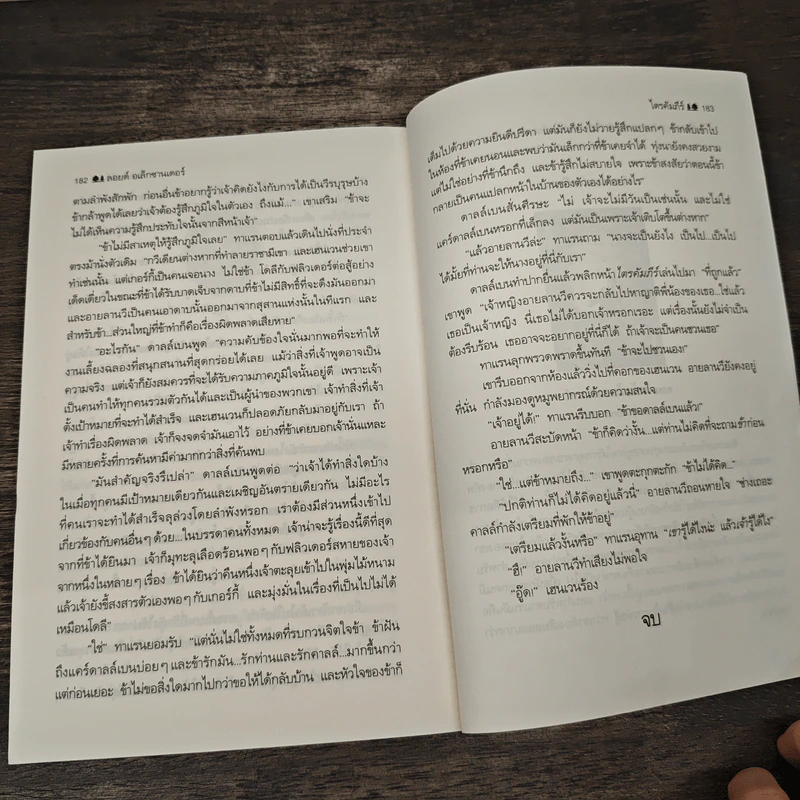 182 ลอยด์ อเล็กซานเดอร์
ตามลำพังสักพัก ก่อนอื่นข้าอยากรู้ว่าเจ้าคิดยังไงกับการได้เป็นวีรบุรุษบ้าง
ข้ากล้าพูดได้เลยว่าเจ้าต้องรู้สึกภูมิใจในตัวเอง ถึงแม้..." เขาเสริม "ข้าจะ
ไม่ได้เห็นความรู้สึกประทับใจนั้นจากสีหน้าเจ้า"
"ข้าไม่มีสาเหตุให้รู้สึกภูมิใจเลย" ทาแรนตอบแล้วเดินไปนั่งที่ประจำ
ตรงม้านั่งตัวเดิม "กวีเดียนต่างหากที่ทำลายราชามีเขา และเฮนเวนช่วยเขา
ทำเช่นนั้น แต่เกอร์กี้เป็นคนเจอนาง ไม่ใช่ข้า โดลีกับฟลิวเดอร์ต่อสู้อย่าง
เด็ดเดี่ยวในขณะที่ข้าได้รับบาดเจ็บจากดาบที่ข้าไม่มีสิทธิ์ที่จะดึงมันออกมา
และอายลานวีเป็นคนเอาดาบนั้นออกมาจากสุสานแห่งนั้นในทีแรก และ
สำหรับข้า...ส่วนใหญ่ที่ข้าทำก็คือเรื่องผิดพลาดเสียหาย"
"อะไรกัน" ดาลล์เบนพูด "ความข้องใจนั่นมากพอที่จะทำให้
งานเลี้ยงฉลองที่สนุกสนานที่สุดกร่อยได้เลย แม้ว่าสิ่งที่เจ้าพูดอาจเป็น
ความจริง แต่เจ้าก็ยังสมควรที่จะได้รับความภาคภูมิใจนั้นอยู่ดี เพราะเจ้า
เป็นคนทำให้ทุกคนรวมตัวกันได้และเป็นผู้นำของพวกเขา เจ้าทำสิ่งที่เจ้า
ตั้งเป้าหมายที่จะทำได้สำเร็จ และเฮนเวนก็ปลอดภัยกลับมาอยู่กับเรา ถ้า
เจ้าทำเรื่องผิดพลาด เจ้าก็จงจดจำมันเอาไว้ อย่างที่ข้าเคยบอกเจ้านั่นแหละ
มีหลายครั้งที่การค้นหามีค่ามากกว่าสิ่งที่ค้นพบ
"มันสำคัญจริงรึเปล่า" ดาลล์เบนพูดต่อ "ว่าเจ้าได้ทำสิ่งใดบ้าง
ในเมื่อทุกคนมีเป้าหมายเดียวกันและเผชิญอันตรายเดียวกัน ไม่มีอะไร
ที่คนเราจะทำได้สำเร็จลุล่วงโดยลำพังหรอก เราต้องมีส่วนหนึ่งเข้าไป
เกี่ยวข้องกับคนอื่นๆ ด้วย...ในบรรดาคนทั้งหมด เจ้าน่าจะรู้เรื่องนี้ดีที่สุด
จากที่ข้าได้ยินมา เจ้าก็มุทะลุเลือดร้อนพอๆ กับฟลิวเดอร์สหายของเจ้า
จากหนึ่งในหลายๆ เรื่อง ข้าได้ยินว่าคืนหนึ่งเจ้าตะลุยเข้าไปในพุ่มไม้หนาม
แล้วเจ้ายังขี้สงสารตัวเองพอๆ กับเกอร์กี้ และมุ่งมั่นในเรื่องที่เป็นไปไม่ได้
เหมือนโดลี"
"ใช่" ทาแรนยอมรับ "แต่นั่นไม่ใช่ทั้งหมดที่รบกวนจิตใจข้า ข้าฝัน
ถึงแคร์ดาลล์เบนบ่อยๆ และข้ารักมัน...รักท่านและรักคาลล์...มากขึ้นกว่า
แต่ก่อนเยอะ ข้าไม่ขอสิ่งใดมากไปกว่าขอให้ได้กลับบ้าน และหัวใจของข้าก็
ไตรคัมภีร์ 183
เต็มไปด้วยความยินดีปรีดา แต่มันก็ยังไม่วายรู้สึกแปลกๆ ข้ากลับเข้าไป
ในห้องที่ข้าเคยนอนและพบว่ามันเล็กกว่าที่ข้าเคยจำได้ ทุ่งนายังคงสวยงาม
แต่ไม่ใช่อย่างที่ข้านึกถึง และข้ารู้สึกไม่สบายใจ เพราะข้าสงสัยว่าตอนนี้ข้า
กลายเป็นคนแปลกหน้าในบ้านของตัวเองได้อย่างไร"
ดาลล์เบนสั่นศีรษะ "ไม่ เจ้าจะไม่มีวันเป็นเช่นนั้น และไม่ใช่
แคร์ดาลล์เบนหรอกที่เล็กลง แต่มันเป็นเพราะเจ้าเติบโตขึ้นต่างหาก"
"แล้วอายลานวีล่ะ" ทาแรนถาม "นางจะเป็นยังไง เป็นไป...เป็นไป
ได้มั้ยที่ท่านจะให้นางอยู่ที่นี่กับเรา"
ดาลล์เบนทำปากยื่นแล้วพลิกหน้าไตรคัมภีร์เล่นไปมา "ที่ถูกแล้ว"
เขาพูด "เจ้าหญิงอายลานวีควรจะกลับไปหาญาติพี่น้องของเธอ...ใช่แล้ว
เธอเป็นเจ้าหญิง นี่เธอไม่ได้บอกเจ้าหรอกเรอะ แต่เรื่องนั้นยังไม่จำเป็น
ต้องรีบร้อน เธออาจจะอยากอยู่ที่นี่ก็ได้ ถ้าเจ้าจะเป็นคนชวนเธอ"
ทาแรนลุกพรวดพราดขึ้นทันที "ข้าจะไปชวนเอง!"
เขารีบออกจากห้องแล้ววิ่งไปที่คอกของเฮนเวน อายลานวียังคงอยู่
ที่นั่น กำลังมองดูหมูพยากรณ์ด้วยความสนใจ
"เจ้าอยู่ได้!" ทาแรนรีบบอก "ข้าขอดาลล์เบนแล้ว!"
อายลานวีสะบัดหน้า "ข้าก็คิดว่างั้น...แต่ท่านไม่คิดที่จะถามข้าก่อน
หรอกหรือ"
"ใช่...แต่ข้าหมายถึง..." เขาพูดตะกุกตะกัก "ข้าไม่ได้คิด..."
"ปกติท่านก็ไม่ได้คิดอยู่แล้วนี่" อายลานวีถอนหายใจ "ช่างเถอะ
คาลล์กำลังเตรียมที่พักให้ข้าอยู่"
"เตรียมแล้วงั้นหรือ" ทาแรนอุทาน "เขารู้ได้ไงน่ะ แล้วเจ้ารู้ได้ไง"
"ฮึ!" อายลานวีทำเสียงไม่พอใจ
"อู๊ด!" เฮนเวนร้อง
จบ